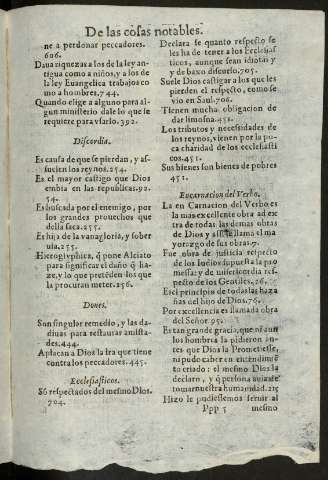 De las cosas notables.
ne a perdonar peccadores.
606.
Daua riquezas a los de la ley an-
tigua como a niños, y a los de
la ley Euangelica trabajos co
mo a hombres, 744.
Quando elige a alguno para al-
gun ministerio dale lo que se
requiere para vsarlo. 392.
Discordia.
Es causa de que se pierdan, y as-
suelen los reynos. 254.
Es el mayor castigo que Dios
embia en las republicas. 92.
54.
Es buscada por el enemigo, por
los grandes prouechos que
della saca. 255.
Es hija de la vanagloria, y sober
uia. 255.
Hieroglyphica, q̃ pone Alciato
para significar el daño q̃ ha-
ze, y lo que pretẽden los que
la procuran meter. 256.
Dones.
Son singular remedio, y las da-
diuas para restaurar amista-
des. 444.
Aplacan a Dios la ira que tiene
contra los peccadores. 445.
Ecclesiasticos.
Sõ respectados del mesmo Dios.
704.
Declara se quanto respecto se
les ha de tener a los Ecclesias
ticos, aunque sean idiotas y
y de baxo discurso. 705.
Suele Dios castigar a los que les
pierden el respecto, como se
vio en Saul. 706.
Tienen mucha obligacion de
dar limosna. 451.
Los tributos y necesidades de
los reynos, vienen por la po
ca charidad de los ecclesiasti
cos. 451.
Sus bienes son bienes de pobres
451.
Encarnacion del Verbo.
La en Carnacion del Verbo es
la mas excellente obra ad ex
tra de todas las demas obras
de Dios y assi se llama el ma
yorazgo de sus obras. 7.
Fue obra de justicia respecto
de los Iudios supuesta la pro
messa: y de misericordia res-
pecto de los Gentiles. 26.
Es el principio de todas las haza
ñas del hijo de Dios. 76.
Por excellencia es llamada obra
del Señor. 95.
Es tan grande gracia, que ni aun
los hombres la pidieron an-
tes que Dios la Prometiesse,
ni pudo caber en entendimiẽ
to criado: el mesmo Dios la
declaro, y q̃ persona auia de
tomar nuestra humanidad. 215
Hizo le pudiessemos seruir al
Ppp 5 mesmo